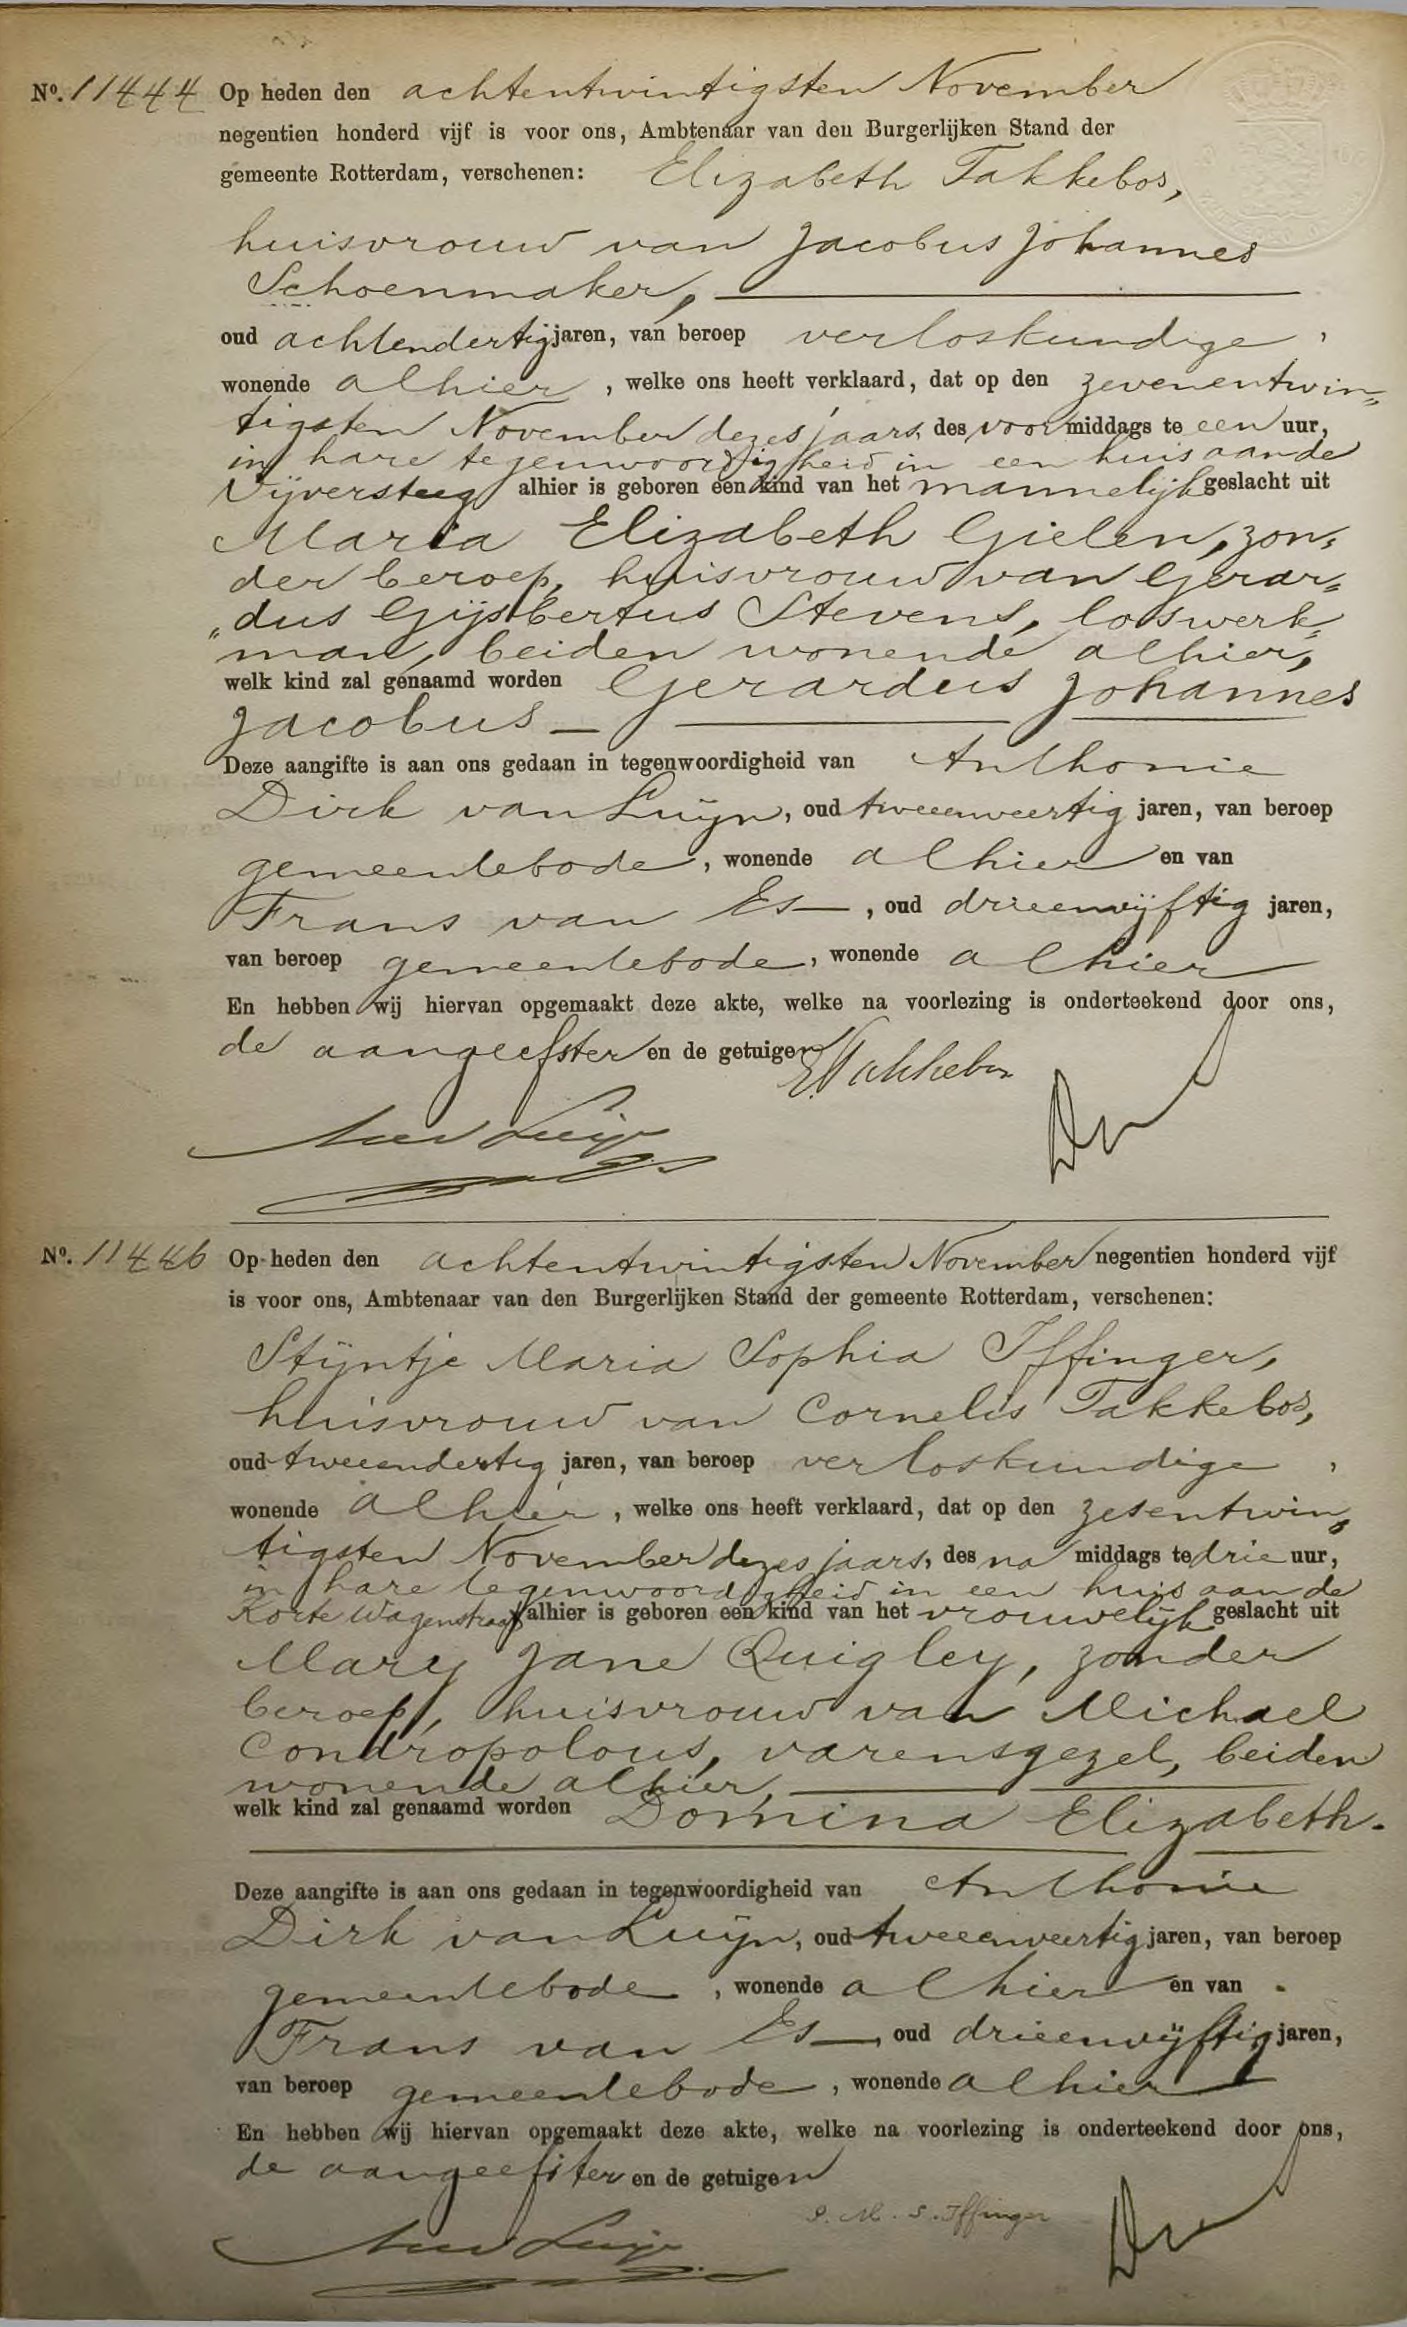 No. 11444 Op heden den achtentwintigsten November
negentien honderd vijf is voor ons, Ambtenaar van den Burgerlijken Stand der
gemeente Rotterdam, verschenen: Elizabeth Takkebos,
huisvrouw van Jacobus Johannes
Schoenmaker,
oud achtendertig jaren, van beroep verloskundige,
wonende alhier, welke ons heeft verklaard, dat op den zevenentwin=
tigsten November dezes jaars, des voormiddags te een uur,
in hare tegenwoordigheid in een huis aan de
Vijversteeg alhier is geboren een kind van het mannelijk geslacht uit
Maria Elizabeth Gielen, zon=
der beroep, huisvrouw van Gerar=
"dus Gijsbertus Stevens, loswerk=
man, beiden wonende alhier,
welk kind zal genaamd worden Gerardus Johannes
Jacobus —
Deze aangifte is aan ons gedaan in tegenwoordigheid van Anthonie
Dirk van Luijn, oud tweeenveertig jaren, van beroep
gemeentebode, wonende alhier en van
Frans van Es —, oud drieenvijftig jaren,
van beroep gemeentebode, wonende alhier
En hebben wij hiervan opgemaakt deze akte, welke na voorlezing is onderteekend door ons,
de aangeefster en de getuigen
E Takkebos
No. 11446 Op heden den achtentwintigsten November negentien honderd vijf
is voor ons, Ambtenaar van den Burgerlijken Stand der gemeente Rotterdam, verschenen:
Stijntje Maria Sophia Iffinger,
huisvrouw van Cornelis Takkebos,
oud tweeendertig jaren, van beroep verloskundige,
wonende alhier, welke ons heeft verklaard, dat op den zesentwin=
tigsten November dezes jaars, des namiddags te drie uur,
in hare tegenwoordigheid in een huis aan de
Korte Wagenstraat alhier is geboren een kind van het vrouwelijk geslacht uit
Mary Jane Quigley, zonder
beroep, huisvrouw van Michael
Condropolous, varensgezel, beiden
wonende alhier,
welk kind zal genaamd worden Domina Elizabeth.
Deze aangifte is aan ons gedaan in tegenwoordigheid van Anthonie
Dirk van Luijn, oud tweeenveertig jaren, van beroep
gemeentebode, wonende alhier en van
Frans van Es —, oud drieenvijftig jaren,
van beroep gemeentebode, wonende alhier
En hebben wij hiervan opgemaakt deze akte, welke na voorlezing is onderteekend door ons,
de aangeefster en de getuigen
S. M. S. Iffinger